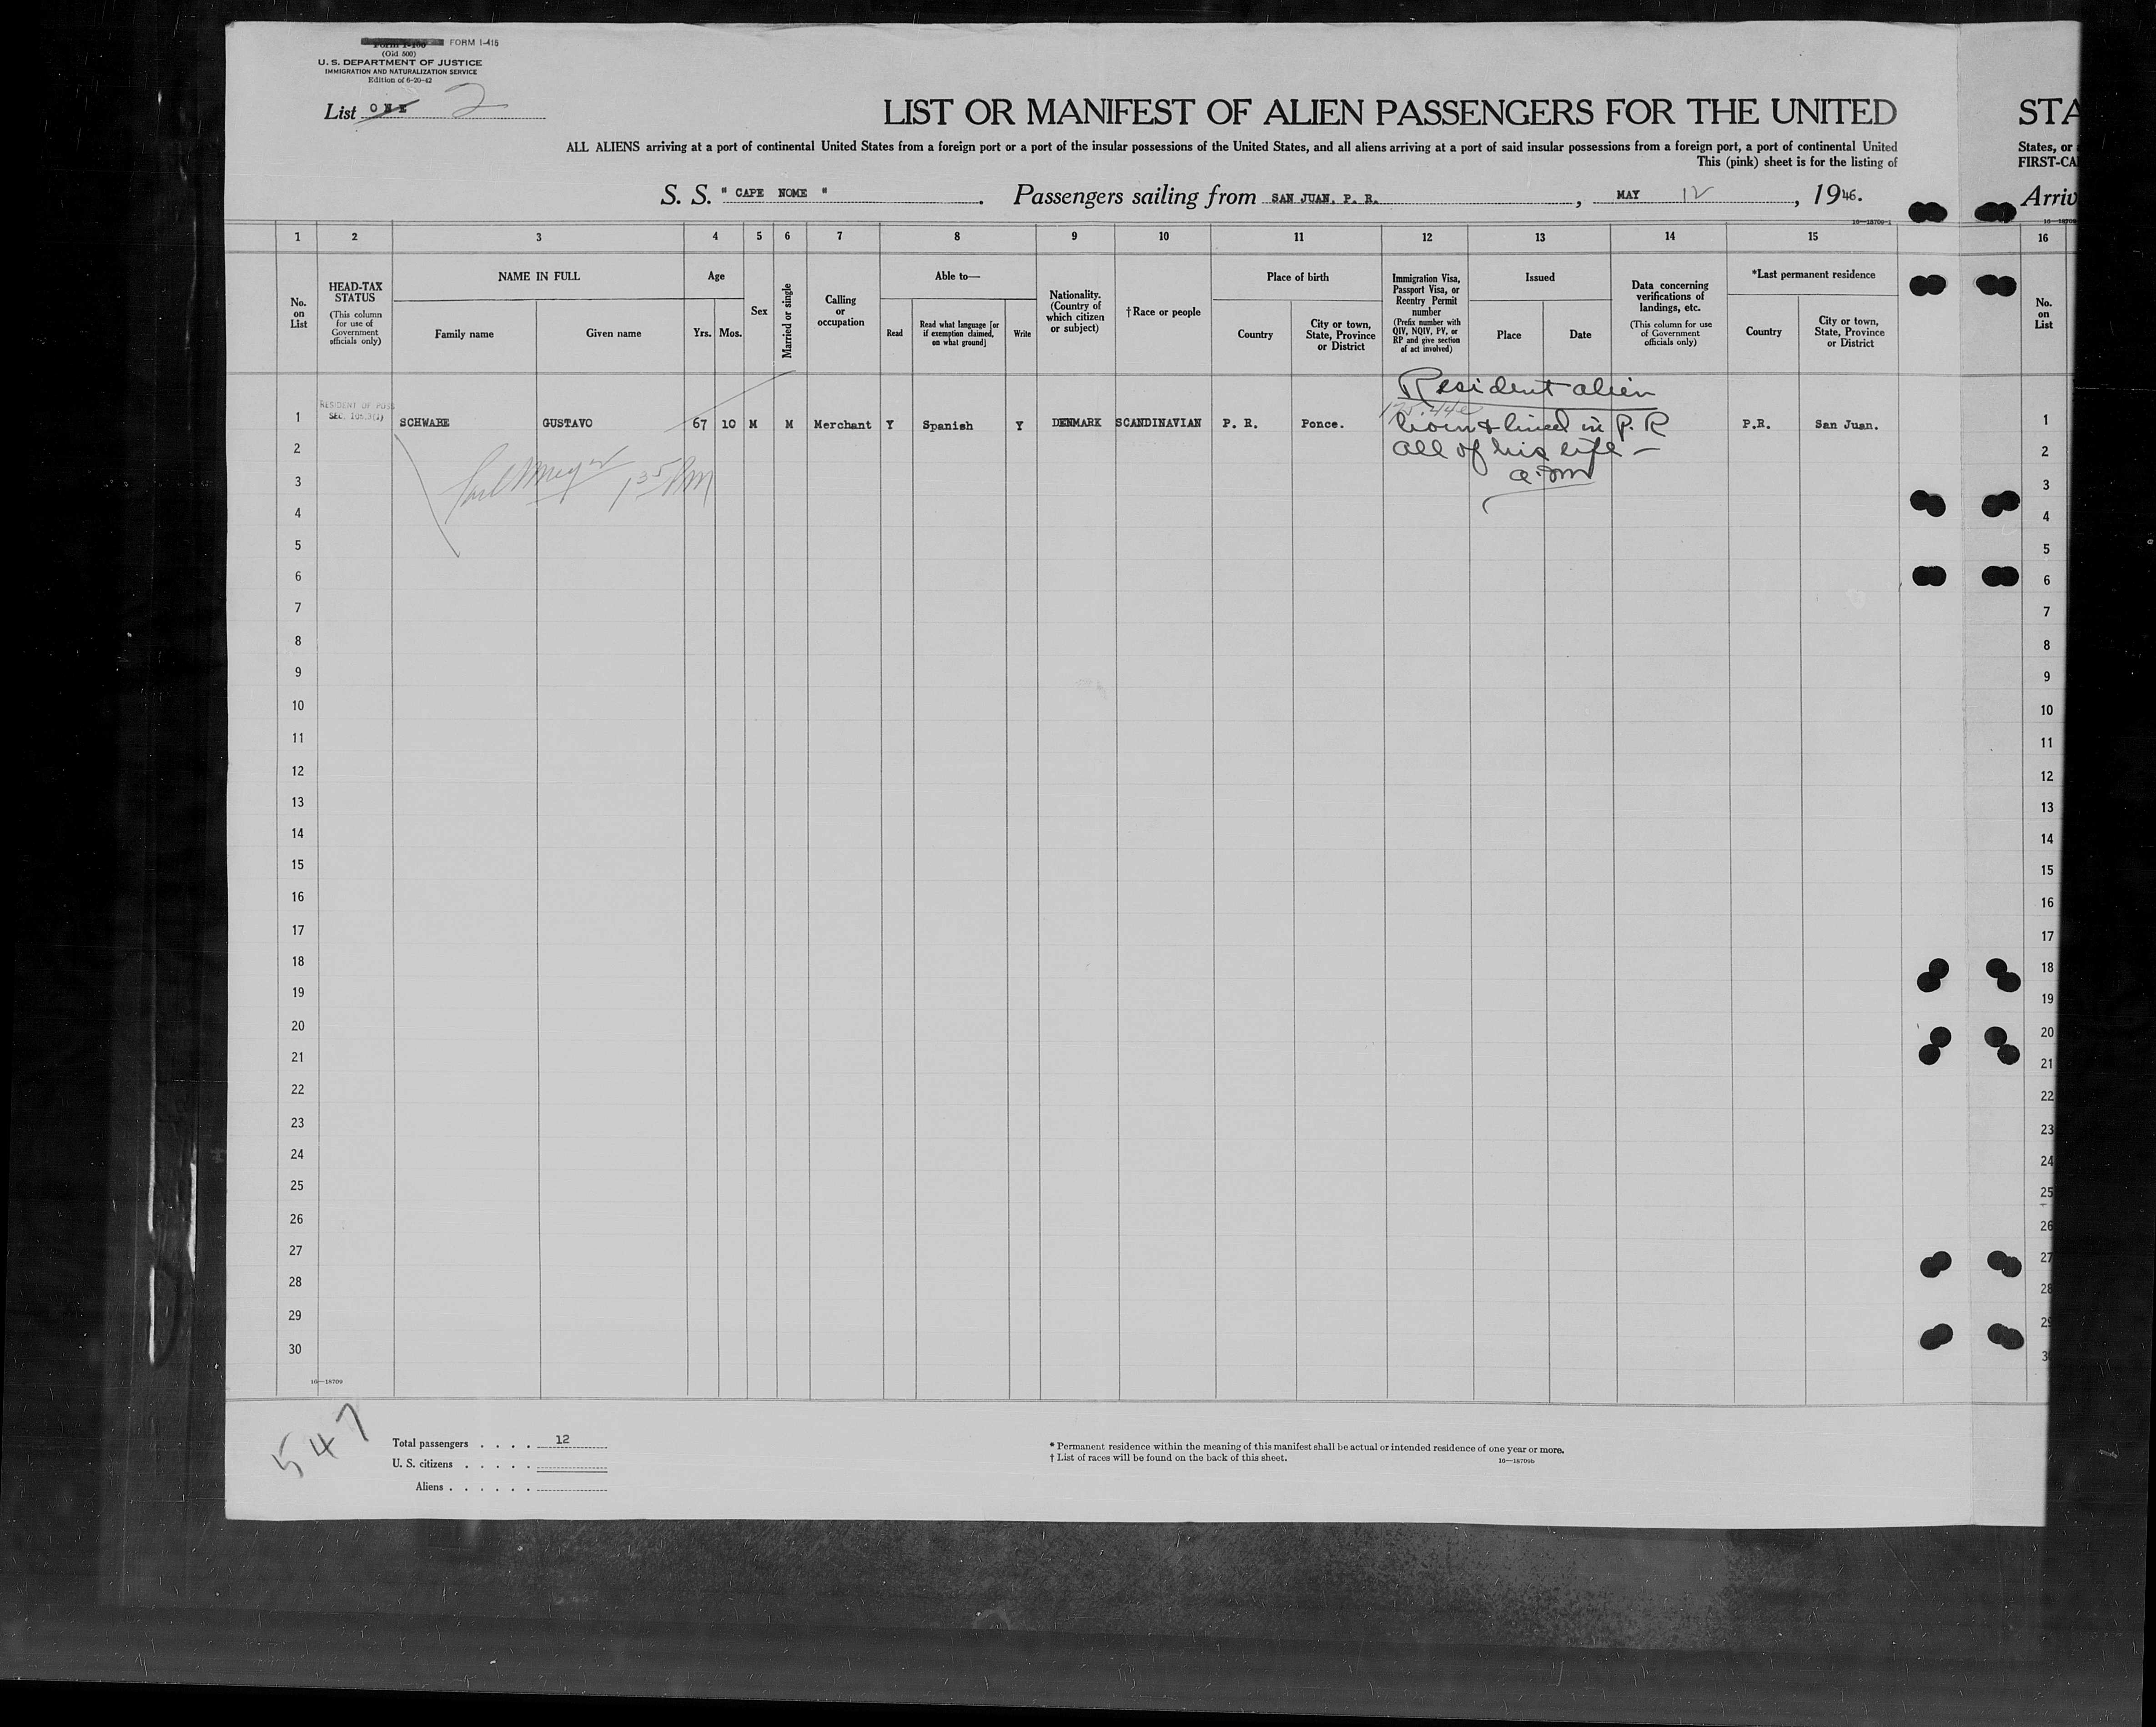 FORM I-415
(Old 500)
U. S. DEPARTMENT OF JUSTICE
IMMIGRATION AND NATURALIZATION SERVICE
Edition of 6-20-42
List ONE 2
LIST OR MANIFEST OF ALIEN PASSENGERS FOR THE UNITED STA
ALL ALIENS arriving at a port of continental United States from a foreign port or a port of the insular possessions of the United States, and all aliens arriving at a port of said insular possessions from a foreign port, a port of continental United States, or
This (pink) sheet is for the listing of FIRST-CA
S. S. " CAPE NOME " . Passengers sailing from SAN JUAN, P. R. , MAY 12 , 1946. Arriv
16—18709-1
1 2 3 4 5 6 7 8 9 10 11 12 13 14 15 16
No. on List
HEAD-TAX STATUS (This column for use of Government officials only)
NAME IN FULL
Family name Given name
Age
Yrs. Mos.
Sex
Married or single
Calling or occupation
Able to—
Read
Read what language [or if exemption claimed, on what ground]
Write
Nationality. (Country of which citizen or subject)
†Race or people
Place of birth
Country
City or town, State, Province or District
Immigration Visa, Passport Visa, or Reentry Permit number (Prefix number with QIV, NQIV, PV, or RP and give section of act involved)
Issued
Place Date
Data concerning verifications of landings, etc. (This column for use of Government officials only)
*Last permanent residence
Country
City or town, State, Province or District
No. on List
Resident alien
RESIDENT OF POSS
1 SCHWABE GUSTAVO 67 10 M M Merchant Y Spanish Y DENMARK SCANDINAVIAN P. R. Ponce. born & lived in P. R P.R. San Juan. 1
2 all of his life — 2
3 3
4 4
5 5
6 6
7 7
8 8
9 9
10 10
11 11
12 12
13 13
14 14
15 15
16 16
17 17
18 18
19 19
20 20
21 21
22 22
23 23
24 24
25 25
26 26
27 27
28 28
29 29
30 3
16—18709
547
Total passengers . . . . 12
U. S. citizens . . . . .
Aliens . . . . . .
* Permanent residence within the meaning of this manifest shall be actual or intended residence of one year or more.
† List of races will be found on the back of this sheet.
16—18709b